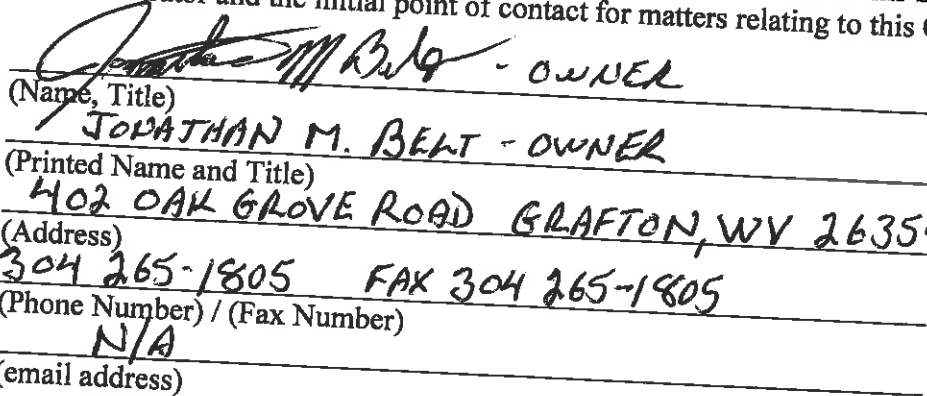 and the initial point of contact for matters relating to this
Jonathan M Belt - OWNER
(Name, Title)
JONATHAN M. BELT - OWNER
(Printed Name and Title)
402 OAK GROVE ROAD GRAFTON, WV 2635
(Address)
304 265-1805 FAX 304 265-1805
(Phone Number) / (Fax Number)
N/A
(email address)